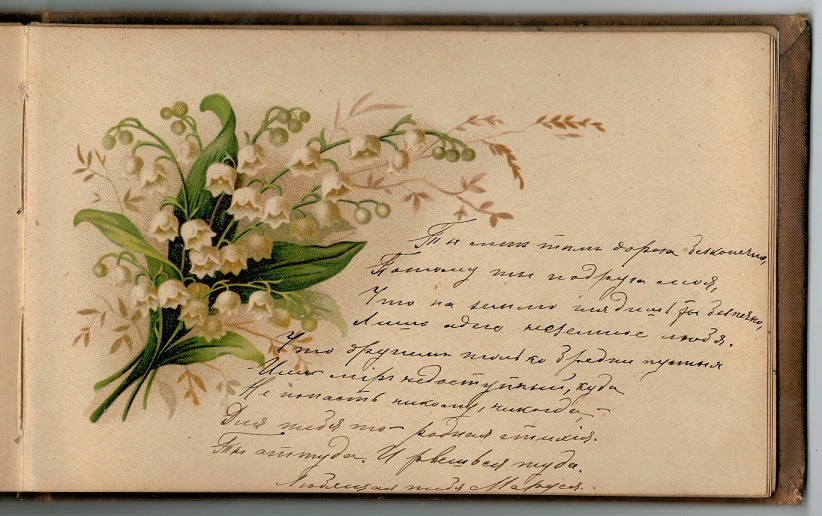 Ты мнѣ тѣмъ дорога безконечно,
Потому ты подруга моя,
Что на землю глядишь ты безпечно,
Лишь одно неземное любя.
Что другимъ только бредни пустыя
Иль міръ недоступный, куда
Не попасть никому, никогда, –
Для тебя то – родная стихія.
Ты оттуда. И рвешься туда.
Любящая тебя Маруся.